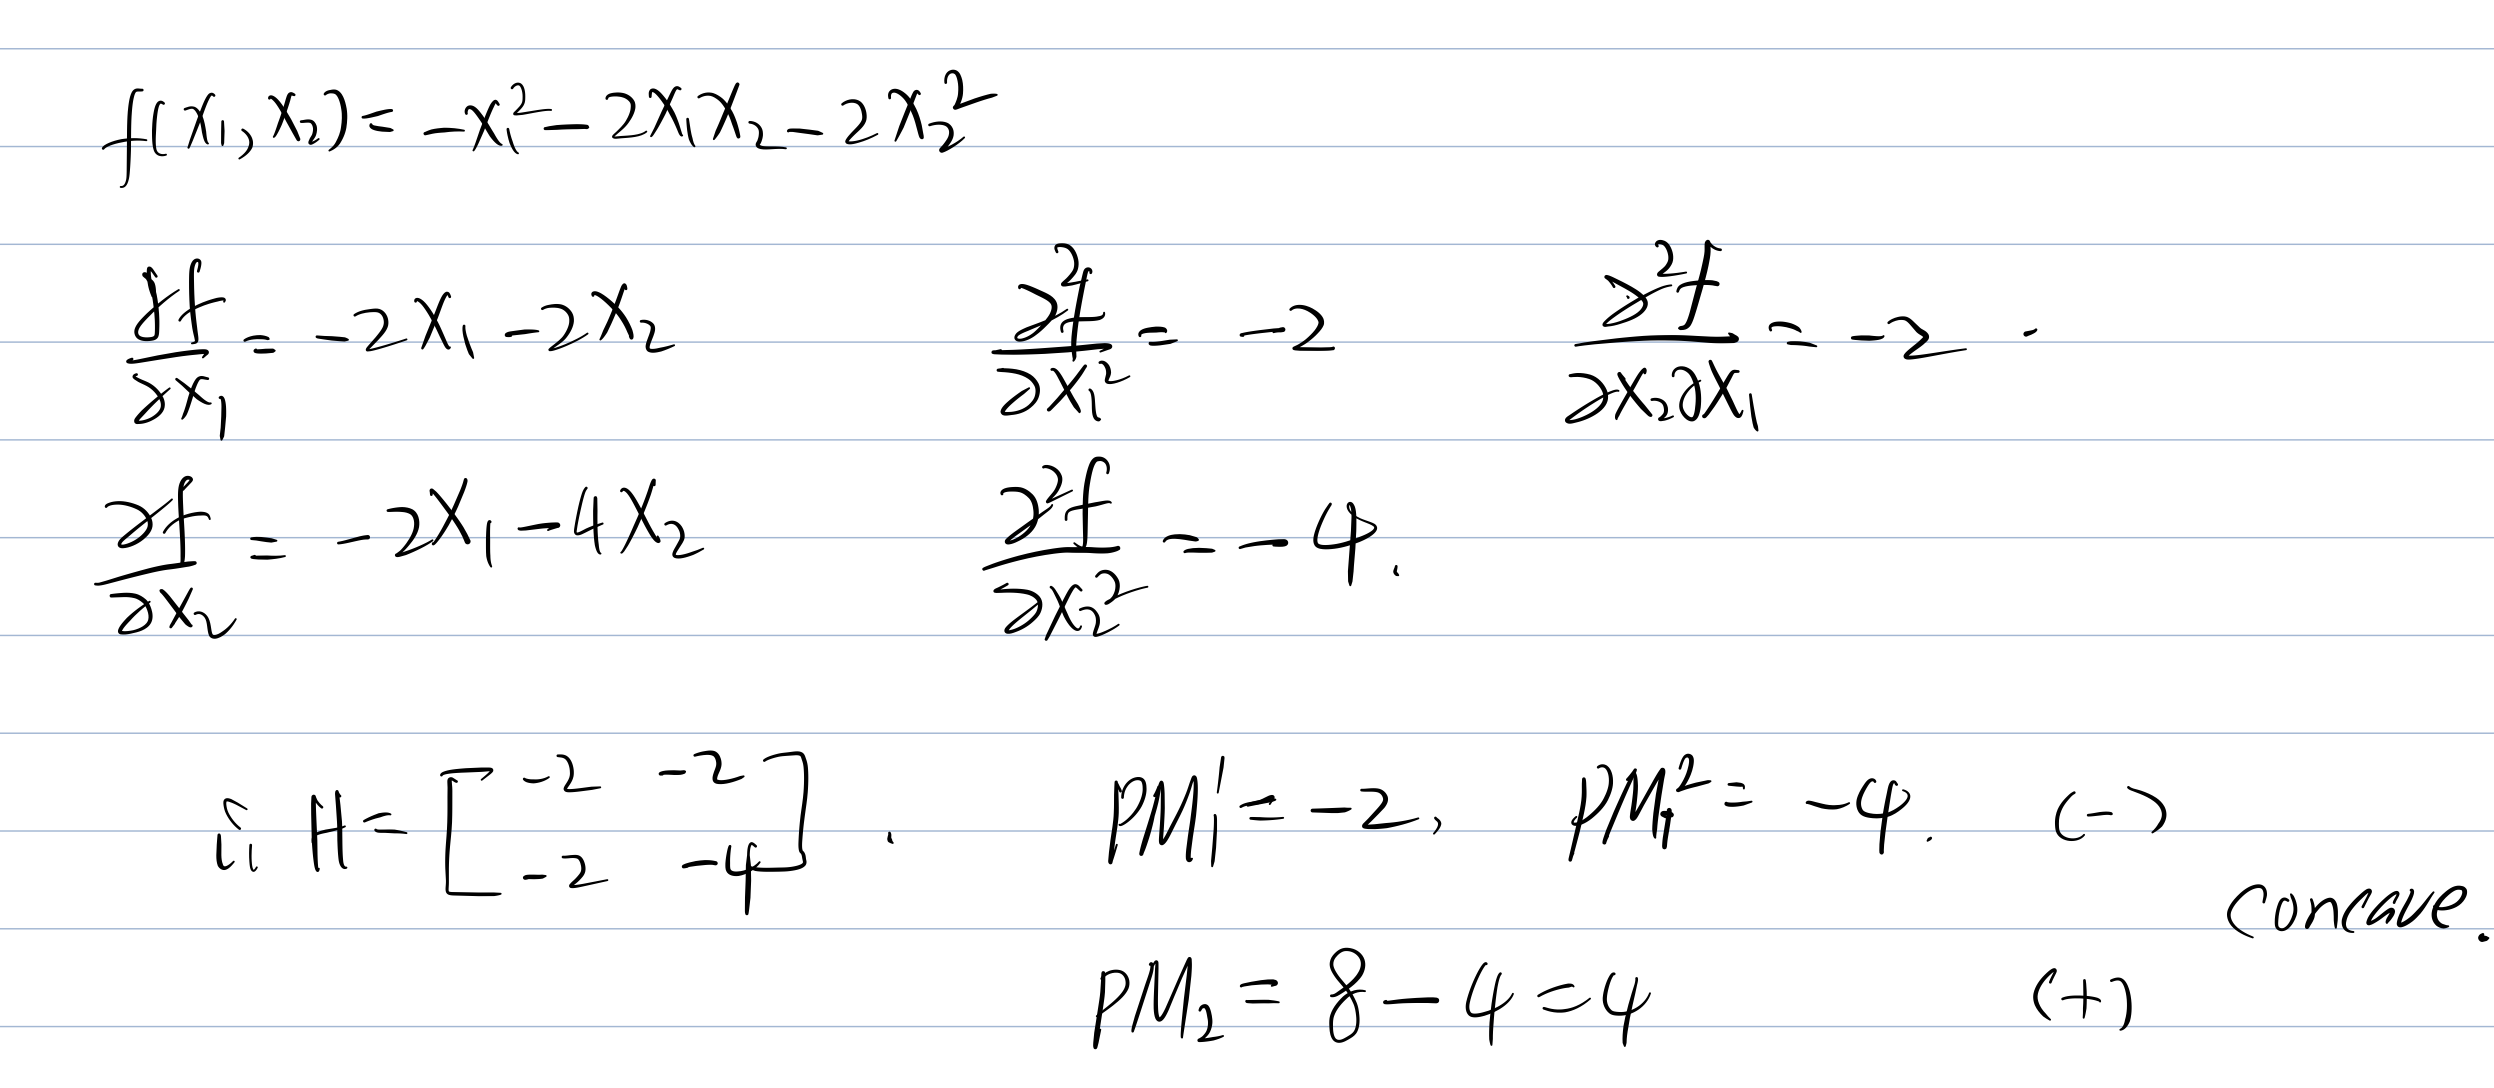 f(x₁, x₂) = -x₁² - 2x₁x₂ - 2x₂²
∂f/∂x₁ = -2x₁ - 2x₂ ∂²f/∂x₁² = -2 ∂²f/∂x₂∂x₁ = -2.
∂f/∂x₂ = -2x₁ - 4x₂ ∂²f/∂x₂² = -4.
ii H = [-2 -2; -2 -4]. PM₁ = -2, PM₁² = -4. (-)
concave.
PM₂ = 8-4 = 4 (+)